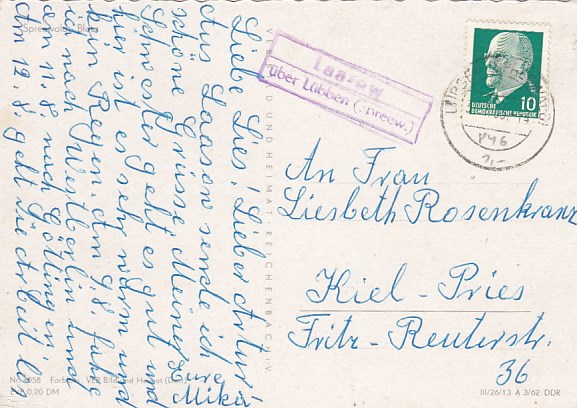 Spreewald, Blota
Liebe Lies! Lieber Artur!
Aus Laasow sende ich
schöne Grüsse. Meiner
Schwester geht es gut und
hier ist es sehr warm und
kein Regen. Am 9.8. fahre
ich nach Westberlin und
am 11.8 nach Göttingen
am 19.8. geht die Arbeit los
Eure
Mika
VEB BILD UND HEIMAT REICHENBACH I.V.
Laasow
über Lübben (Spreew.)
10
DEUTSCHE
DEMOKRATISCHE REPUBLIK
LÜBBEN
An Frau
Liesbeth Rosenkranz
Kiel-Pries
Fritz-Reuterstr.
36
Farbfoto: VEB Bild und Heimat
0.20 DM
III/26/13 A 3/62 DDR